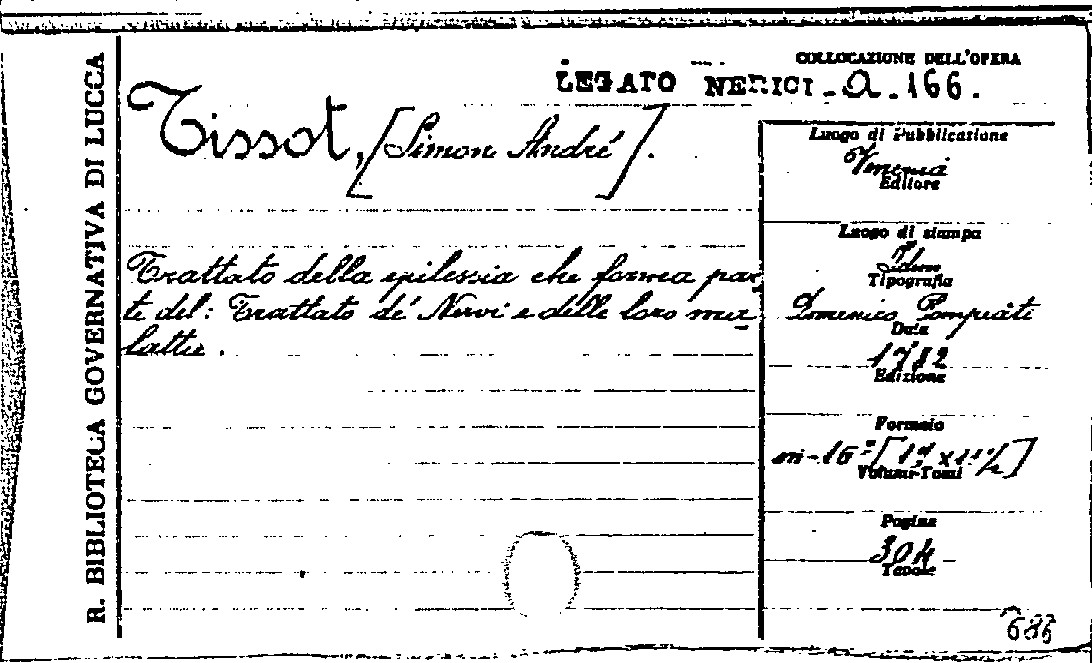 R. BIBLIOTECA GOVERNATIVA DI LUCCA
COLLOCAZIONE DELL'OPERA
LEGATO NERICI - a. 166.
Tissot, [Simon André].
Trattato della epilessia che forma par-
te del: Trattato de' Nervi e delle loro ma-
lattie.
Luogo di Pubblicazione
Venezia
Editore
Luogo di stampa
Idem
Tipografia
Domenico Pompeati
Data
1782
Edizione
Formato
in-16º
Volumi-Tomi
Pagine
304
Tavole